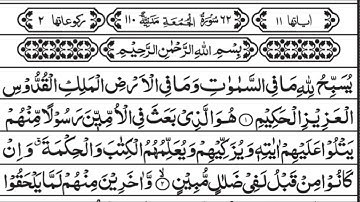 اٰیاتہا ۱۱ ۶۲ سُوْرَةُ الْجُمُعَةِ مَدَنِيَّةٌ ۱۱۰ رکوعاتہا ۲
بِسْمِ اللّٰهِ الرَّحْمٰنِ الرَّحِيْمِ
يُسَبِّحُ لِلّٰهِ مَا فِي السَّمٰوٰتِ وَمَا فِي الْاَرْضِ الْمَلِكِ الْقُدُّوْسِ
الْعَزِيْزِ الْحَكِيْمِ ۱ هُوَ الَّذِيْ بَعَثَ فِي الْاُمِّيّٖنَ رَسُوْلًا مِّنْهُمْ
يَتْلُوْا عَلَيْهِمْ اٰيٰتِهٖ وَيُزَكِّيْهِمْ وَيُعَلِّمُهُمُ الْكِتٰبَ وَالْحِكْمَةَ ۗ وَاِنْ
كَانُوْا مِنْ قَبْلُ لَفِيْ ضَلٰلٍ مُّبِيْنٍ ۲ وَّاٰخَرِيْنَ مِنْهُمْ لَمَّا يَلْحَقُوْا